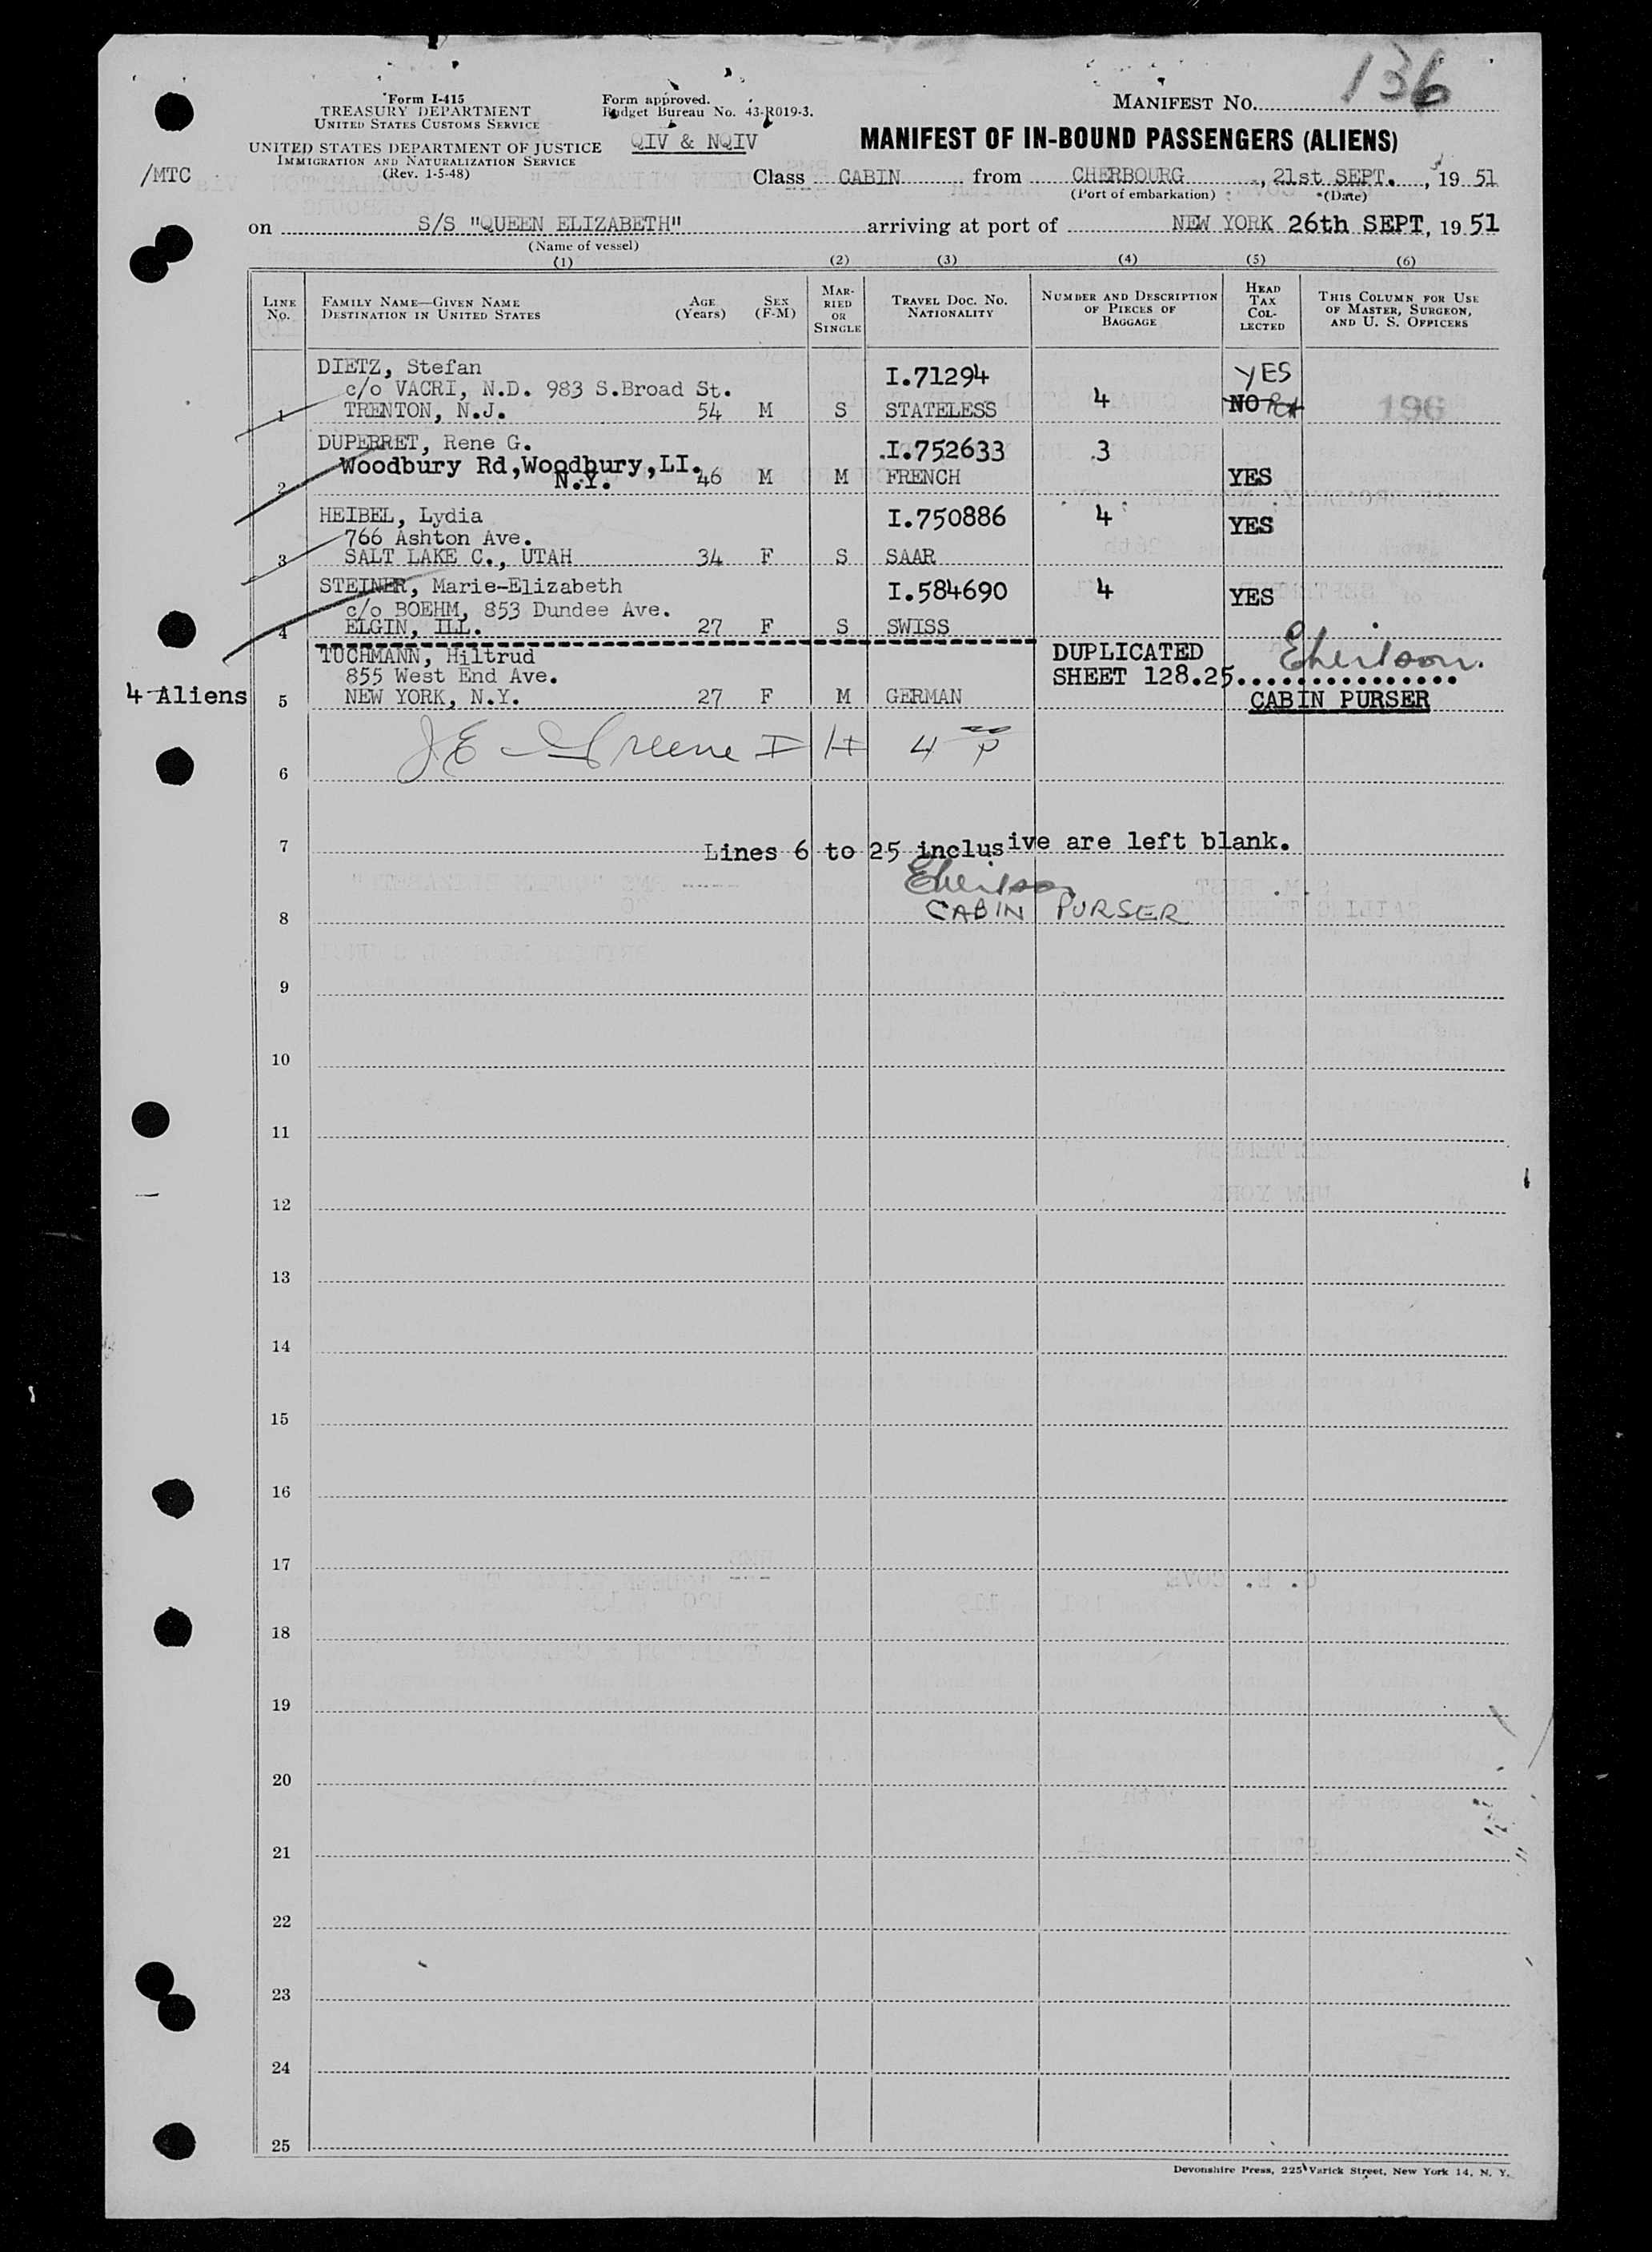 136
Form I-415
TREASURY DEPARTMENT
UNITED STATES CUSTOMS SERVICE
UNITED STATES DEPARTMENT OF JUSTICE
IMMIGRATION AND NATURALIZATION SERVICE
(Rev. 1-5-48)
/MTC
Form approved.
Budget Bureau No. 43-R019-3.
QIV & NQIV
MANIFEST NO.
MANIFEST OF IN-BOUND PASSENGERS (ALIENS)
Class CABIN from CHERBOURG, 21st SEPT., 19 51
(Port of embarkation) (Date)
on S/S "QUEEN ELIZABETH" arriving at port of NEW YORK 26th SEPT, 19 51
(Name of vessel)
(1) (2) (3) (4) (5) (6)
LINE NO. FAMILY NAME—GIVEN NAME DESTINATION IN UNITED STATES AGE (Years) SEX (F-M) MARRIED OR SINGLE TRAVEL DOC. NO. NATIONALITY NUMBER AND DESCRIPTION OF PIECES OF BAGGAGE HEAD TAX COLLECTED THIS COLUMN FOR USE OF MASTER, SURGEON, AND U. S. OFFICERS
DIETZ, Stefan I.71294 YES
c/o VACRI, N.D. 983 S.Broad St.
1 TRENTON, N.J. 54 M S STATELESS 4 NO 196
DUPERRET, Rene G. I.752633 3
Woodbury Rd,Woodbury,LI.
2 N.Y. 46 M M FRENCH YES
HEIBEL, Lydia I.750886 4 YES
766 Ashton Ave.
3 SALT LAKE C., UTAH 34 F S SAAR
STEINER, Marie-Elizabeth I.584690 4 YES
c/o BOEHM, 853 Dundee Ave.
4 ELGIN, ILL. 27 F S SWISS
TUCHMANN, Hiltrud DUPLICATED
855 West End Ave. SHEET 128.25
4 Aliens 5 NEW YORK, N.Y. 27 F M GERMAN CABIN PURSER
J E Greene I H 4 P
6
7 Lines 6 to 25 inclusive are left blank.
8 CABIN PURSER
9
10
11
12
13
14
15
16
17
18
19
20
21
22
23
24
25
Devonshire Press, 225 Varick Street, New York 14, N. Y.